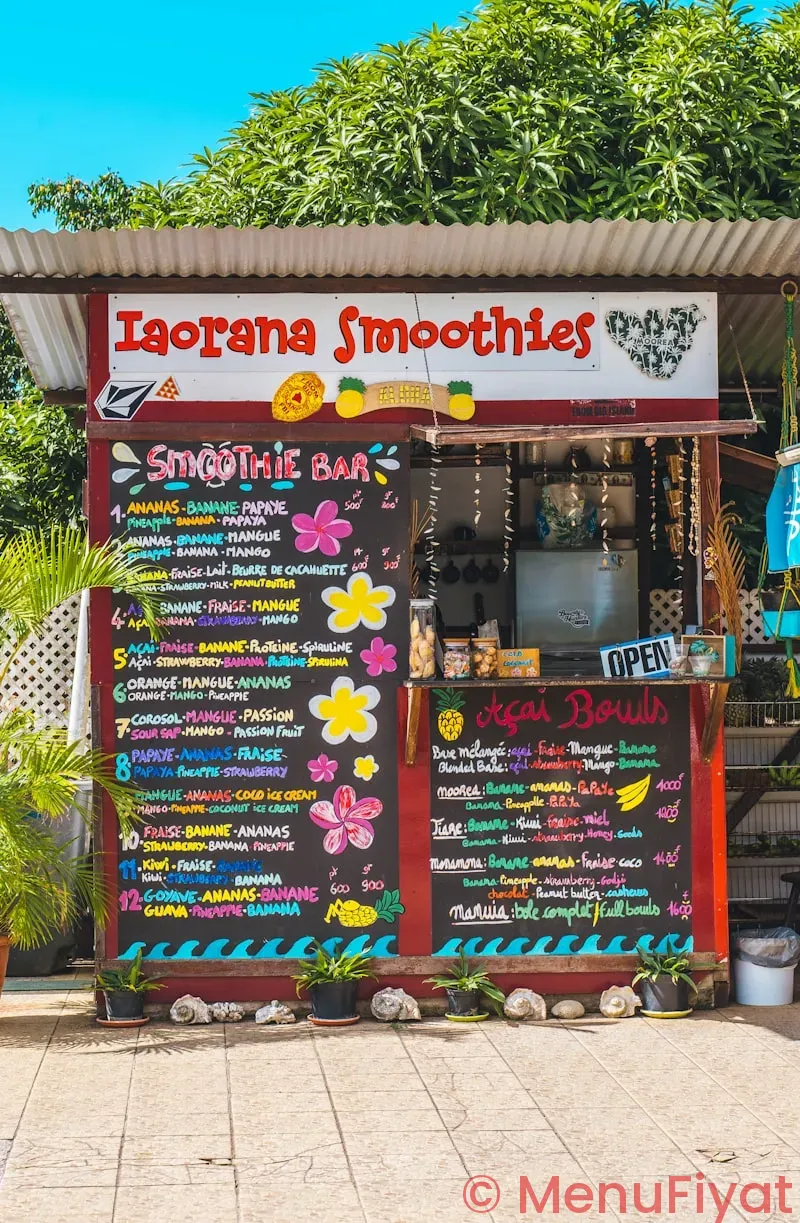 Iaorana Smoothies
MOOREA
SMOOTHIE BAR
1. ANANAS - BANANE - PAPAYE
PINEAPPLE - BANANA - PAPAYA
ANANAS - BANANE - MANGUE
PINEAPPLE - BANANA - MANGO
FRAISE - LAIT - BEURRE DE CACAHUETTE
STRAWBERRY - MILK - PEANUT BUTTER
600F 800F
4 BANANE - FRAISE - MANGUE
BANANA - STRAWBERRY - MANGO
5 AÇAI - FRAISE - BANANE - PROTEINE - SPIRULINE
AÇAI - STRAWBERRY - BANANA - PROTEINE - SPIRULINA
6 ORANGE - MANGUE - ANANAS
ORANGE - MANGO - PINEAPPLE
7 COROSOL - MANGUE - PASSION
SOUR SAP - MANGO - PASSION FRUIT
8 PAPAYE - ANANAS - FRAISE
PAPAYA - PINEAPPLE - STRAWBERRY
MANGUE - ANANAS - COCO ICE CREAM
MANGO - PINEAPPLE - COCONUT ICE CREAM
10 FRAISE - BANANE - ANANAS
STRAWBERRY - BANANA - PINEAPPLE
11. KIWI - FRAISE - BANANE
KIWI - STRAWBERRY - BANANA
12. GOYAVE - ANANAS - BANANE
GUAVA - PINEAPPLE - BANANA
600 900
OPEN
Açai Bowls
Base Mélangée: açai - Fraise - Mangue - Banane
Blended Base: açai - strawberry - Mango - Banana
moorea: Banane - ananas - PaPaye 1000F
Banana - Pineapple - PaPaYa
Tiare: Banane - Kiwi - Fraise - miel 1200F
Banana - Kiwi - strawberry - Honey - Seeds
manamana: Banane - ananas - Fraise - coco 1400F
Banana - Pineapple - strawberry - Godji
chocolat - Peanut butter - cashews
mamuia: bole complet / Full bouls 1600F
© MenuFiyat